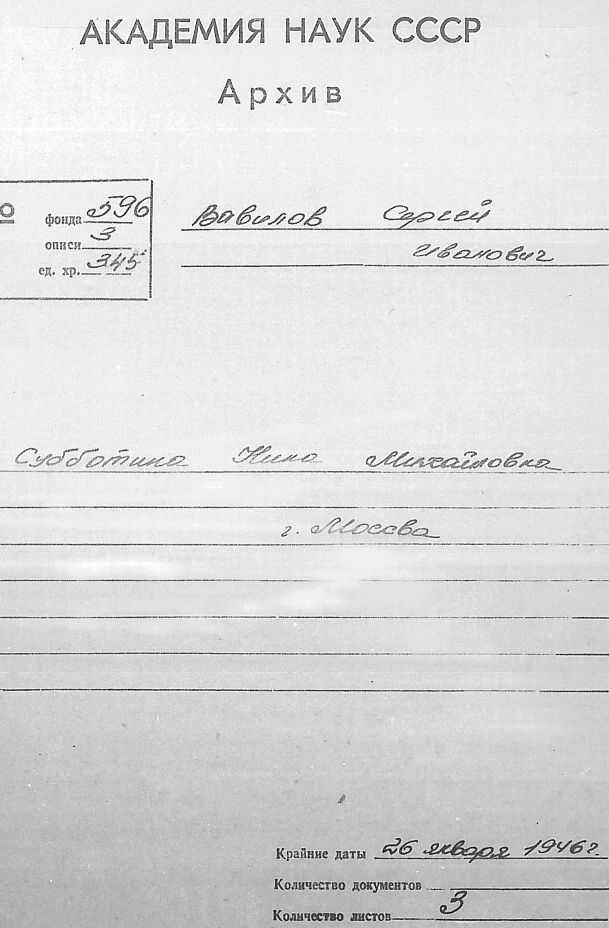 АКАДЕМИЯ НАУК СССР
Архив
№
фонда 596
описи 3
ед. хр. 345
Вавилов Сергей
Иванович
Субботина Нина Михайловна
г. Москва
Крайние даты 26 января 1946 г.
Количество документов
Количество листов 3